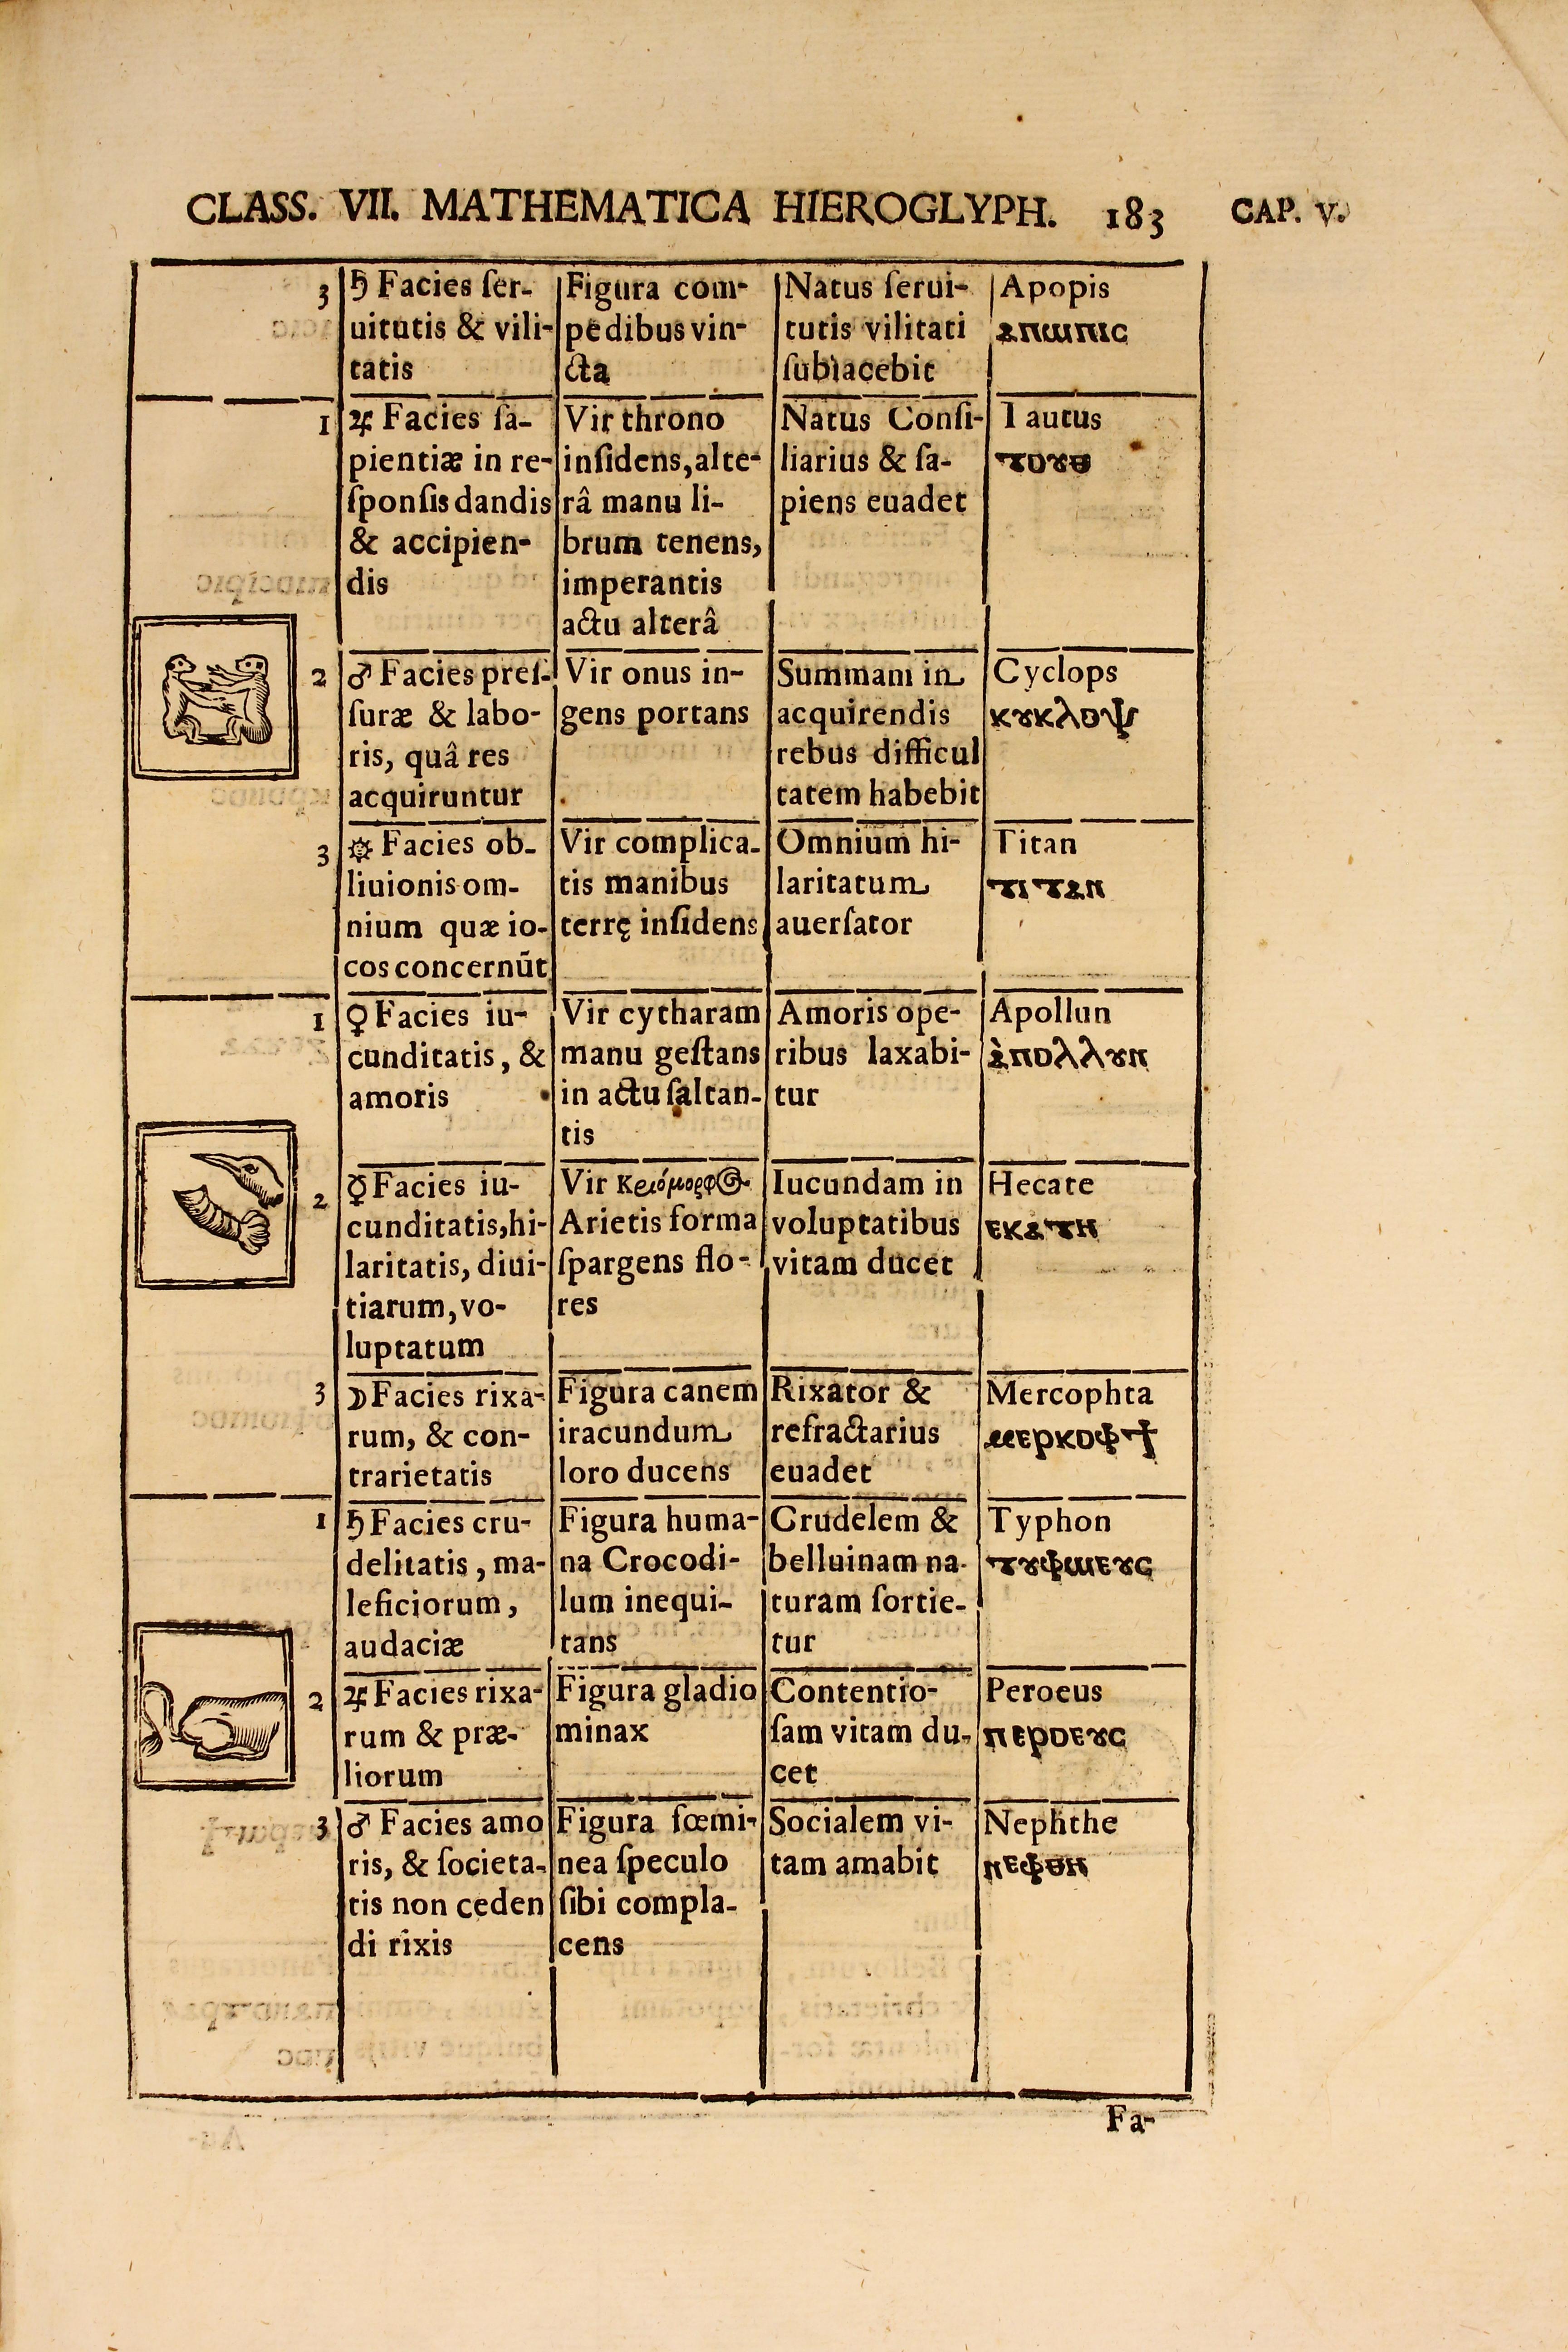 CLASS. VII. MATHEMATICA HIEROGLYPH. 183 CAP. V.
3
♄ Facies ſer-
uitutis & vili-
tatis
Figura com-
pedibus vin-
cta
Natus ſerui-
tutis vilitati
ſubiacebit
Apopis
ⲁⲡⲱⲡⲓⲥ
1
♃ Facies ſa-
pientiæ in re-
ſponſis dandis
& accipien-
dis
Vir throno
inſidens, alte-
râ manu li-
brum tenens,
imperantis
actu alterâ
Natus Conſi-
liarius & ſa-
piens euadet
Tautus
ⲧⲟⲩⲑ
2
♂ Facies preſ-
ſuræ & labo-
ris, quâ res
acquiruntur
Vir onus in-
gens portans
Summam in
acquirendis
rebus difficul
tatem habebit
Cyclops
ⲕⲩⲕⲗⲟⲯ
3
☼ Facies ob-
liuionis om-
nium quæ io-
cos concernūt
Vir complica-
tis manibus
terrę inſidens
Omnium hi-
laritatum
auerſator
Titan
ⲧⲓⲧⲁⲛ
1
♀ Facies iu-
cunditatis, &
amoris
Vir cytharam
manu geſtans
in actu ſaltan-
tis
Amoris ope-
ribus laxabi-
tur
Apollun
ⲁ̀ⲡⲟⲗⲗⲩⲛ
2
☿ Facies iu-
cunditatis, hi-
laritatis, diui-
tiarum, vo-
luptatum
Vir Κριόμορφος
Arietis forma
ſpargens flo-
res
Iucundam in
voluptatibus
vitam ducet
Hecate
ⲉⲕⲁⲧⲏ
3
☽ Facies rixa-
rum, & con-
trarietatis
Figura canem
iracundum
loro ducens
Rixator &
refractarius
euadet
Mercophta
ⲙⲉⲣⲕⲟⲫϯ
1
♄ Facies cru-
delitatis, ma-
leficiorum,
audaciæ
Figura huma-
na Crocodi-
lum inequi-
tans
Crudelem &
belluinam na-
turam ſortie-
tur
Typhon
ⲧⲩⲫⲱⲉⲩⲥ
2
♃ Facies rixa-
rum & præ-
liorum
Figura gladio
minax
Contentio-
ſam vitam du-
cet
Peroeus
ⲡⲉⲣⲟⲉⲩⲥ
3
♂ Facies amo
ris, & ſocieta-
tis non ceden
di rixis
Figura fœmi-
nea ſpeculo
ſibi compla-
cens
Socialem vi-
tam amabit
Nephthe
ⲛⲉⲫⲑⲏ
Fa-